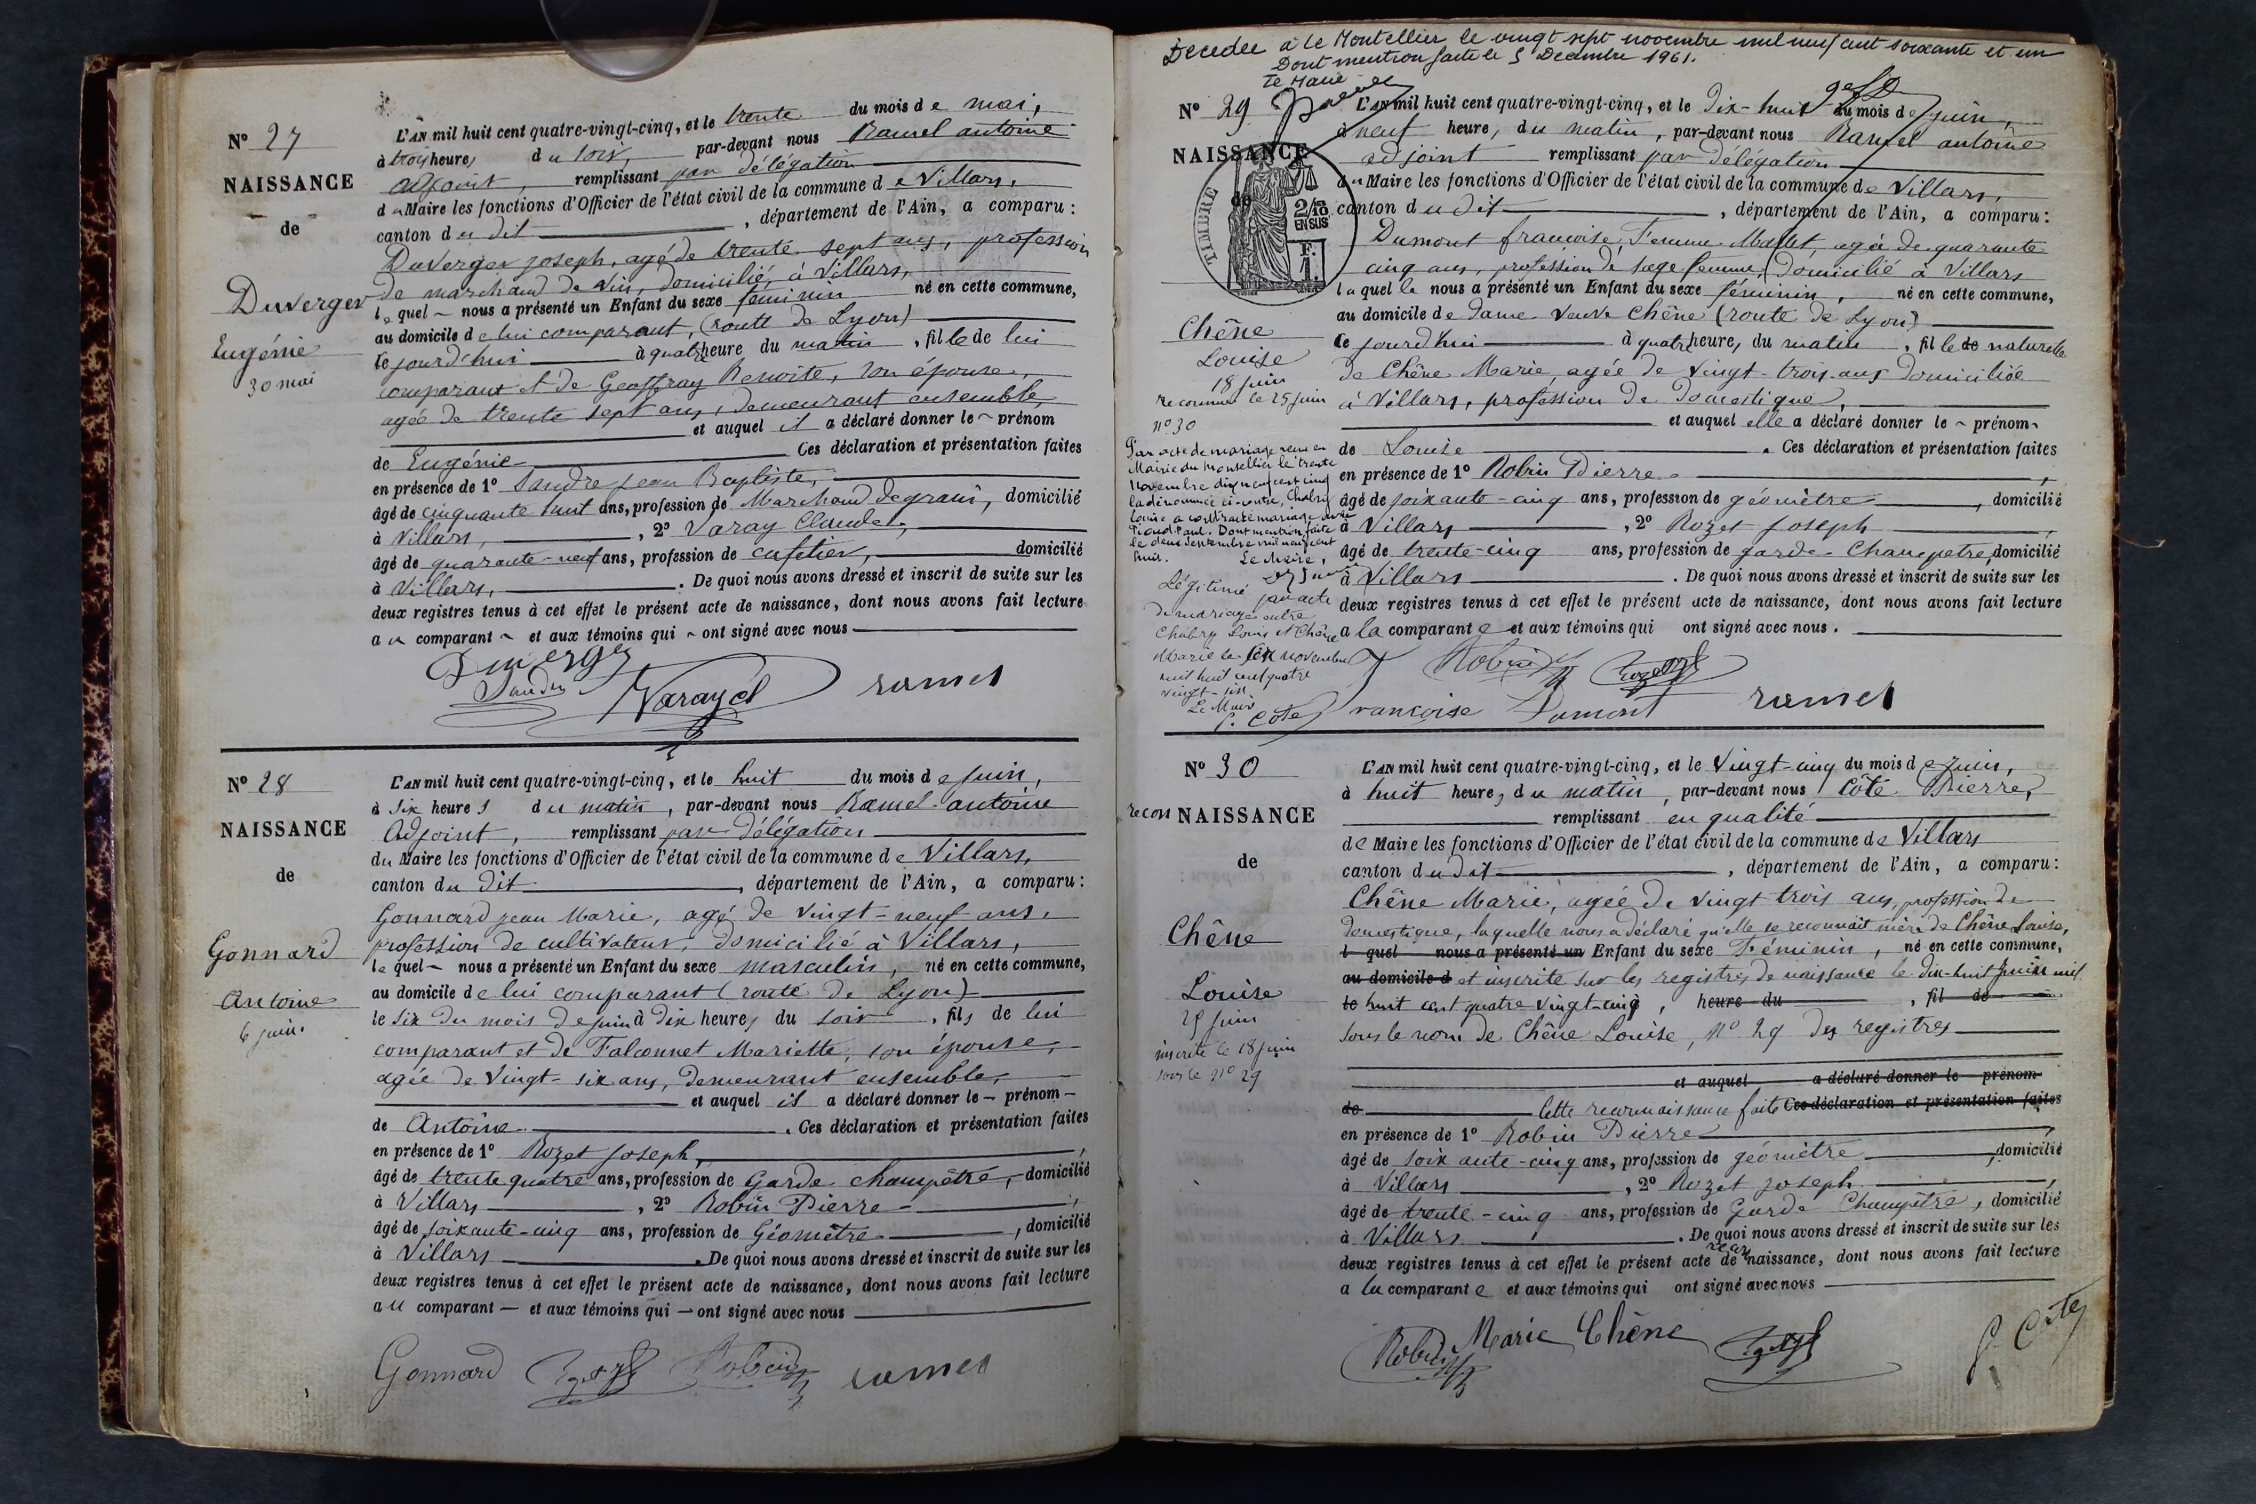 N° 27
NAISSANCE
de
Duverger
Eugénie
30 mai
L'AN mil huit cent quatre-vingt-cinq, et le trente du mois de mai,
à trois heures du soir, par-devant nous Ramel antoine
adjoint, remplissant par délégation
du Maire les fonctions d'Officier de l'état civil de la commune de Villars,
canton du dit, département de l'Ain, a comparu :
Duverger joseph, agé de trente sept ans, profession
de marchand de vin, domicilié à Villars,
lequel nous a présenté un Enfant du sexe féminin né en cette commune,
au domicile de lui comparant, (route de Lyon)
ce jourd'hui à quatre heure du matin, fille de lui
comparant et de Geoffray Benoite, son épouse,
agée de trente sept ans, demeurant ensemble,
et auquel il a déclaré donner le prénom
de Eugénie Ces déclaration et présentation faites
en présence de 1° Sandre jean Baptiste,
âgé de cinquante huit ans, profession de Marchand de grains, domicilié
à Villars, , 2° Varay Claude,
âgé de quarante-neuf ans, profession de cafetier, domicilié
à Villars, . De quoi nous avons dressé et inscrit de suite sur les
deux registres tenus à cet effet le présent acte de naissance, dont nous avons fait lecture
au comparant et aux témoins qui ont signé avec nous
Duverger
Sandre
Varay cl
ramel
N° 28
NAISSANCE
de
Gonnard
Antoine
6 juin.
L'AN mil huit cent quatre-vingt-cinq, et le huit du mois de juin,
à six heures du matin, par-devant nous Ramel antoine
Adjoint, remplissant par délégation
du Maire les fonctions d'Officier de l'état civil de la commune de Villars,
canton du dit, département de l'Ain, a comparu :
Gonnard jean Marie, agé de vingt-neuf ans,
profession de cultivateur, domicilié à Villars,
lequel nous a présenté un Enfant du sexe masculin, né en cette commune,
au domicile de lui comparant (route de Lyon)
le six du mois de juin à dix heures du soir, fils de lui
comparant et de Falconnet Mariette, son épouse,
agée de vingt-six ans, demeurant ensemble,
et auquel il a déclaré donner le prénom
de Antoine. Ces déclaration et présentation faites
en présence de 1° Rozet joseph,
âgé de trente quatre ans, profession de Garde champêtre, domicilié
à Villars, 2° Robin Pierre
âgé de soixante-cinq ans, profession de Géomètre, domicilié
à Villars. De quoi nous avons dressé et inscrit de suite sur les
deux registres tenus à cet effet le présent acte de naissance, dont nous avons fait lecture
au comparant et aux témoins qui ont signé avec nous
Gonnard Rozet Robin ramel
Décédée à Le Montellier le vingt sept novembre mil neuf cent soixante et un
Dont mention faite le 5 Décembre 1961.
Le Maire
N° 29
NAISSANCE
de
TIMBRE
2/10
EN SUS
F.
1.
Chêne
Louise
18 juin
reconnue le 25 juin
n° 30
Par acte de mariage reçu en
Mairie du Montellier le trente
Novembre dix neuf cent cinq
la dénommée ci-contre, Chabry
Louise a contracté mariage avec
Dont mention faite
le deux Septembre mil neuf cent
huit.
Le Maire,
Légitimé par acte
de mariage entre
Chabry Louis et Chêne
Marie le six novembre
mil huit cent quatre
vingt-six
Le Maire
P. Côte
L'AN mil huit cent quatre-vingt-cinq, et le Dix-huit du mois de juin,
à neuf heure, du matin, par-devant nous Ramel antoine
adjoint remplissant par délégation
du Maire les fonctions d'Officier de l'état civil de la commune de Villars,
canton du dit, département de l'Ain, a comparu :
Dumont francoise, Femme Mallet, agée de quarante
cinq ans, profession de sage femme, domicilié à Villars
laquelle nous a présenté un Enfant du sexe féminin, né en cette commune,
au domicile de dame veuve Chêne (route de Lyon)
ce jourd'hui à quatre heure, du matin, fille de naturelle
de Chêne Marie, agée de vingt-trois ans domiciliée
à Villars, profession de Domestique,
et auquel elle a déclaré donner le prénom
de Louise. Ces déclaration et présentation faites
en présence de 1° Robin Pierre
âgé de soixante-cinq ans, profession de géomètre, domicilié
à Villars, 2° Rozet joseph
âgé de trente-cinq ans, profession de garde-Champetre, domicilié
à Villars. De quoi nous avons dressé et inscrit de suite sur les
deux registres tenus à cet effet le présent acte de naissance, dont nous avons fait lecture
a la comparante et aux témoins qui ont signé avec nous.
Robin Rozet
Francoise Dumont ramel
N° 30
recon NAISSANCE
de
Chêne
Louise
25 juin
inscrite le 18 juin
sous le n° 29
L'AN mil huit cent quatre-vingt-cinq, et le vingt-cinq du mois de juin,
à huit heures du matin, par-devant nous Côte Pierre,
remplissant en qualité
de Maire les fonctions d'Officier de l'état civil de la commune de Villars
canton du dit, département de l'Ain, a comparu :
Chêne Marie, agée de vingt trois ans, profession de
domestique, laquelle nous a déclaré qu'elle se reconnait mère de Chêne Louise,
l quel nous a présenté un Enfant du sexe Féminin, né en cette commune,
au domicile d et inscrite sur les registres de naissance le dix-huit juin mil
le huit cent quatre vingt-cinq, heure du , fil de
sous le nom de Chêne Louise, n° 29 des registres
et auquel a déclaré donner le prénom
de Cette reconnaissance faite Ces déclaration et présentation faites
en présence de 1° Robin Pierre
âgé de soixante-cinq ans, profession de géomètre, domicilié
à Villars, 2° Rozet joseph
âgé de trente-cinq ans, profession de Garde Champêtre, domicilié
à Villars. De quoi nous avons dressé et inscrit de suite sur les
deux registres tenus à cet effet le présent acte de naissance, dont nous avons fait lecture
a la comparante et aux témoins qui ont signé avec nous
Robin Marie Chêne Rozet P. Côte